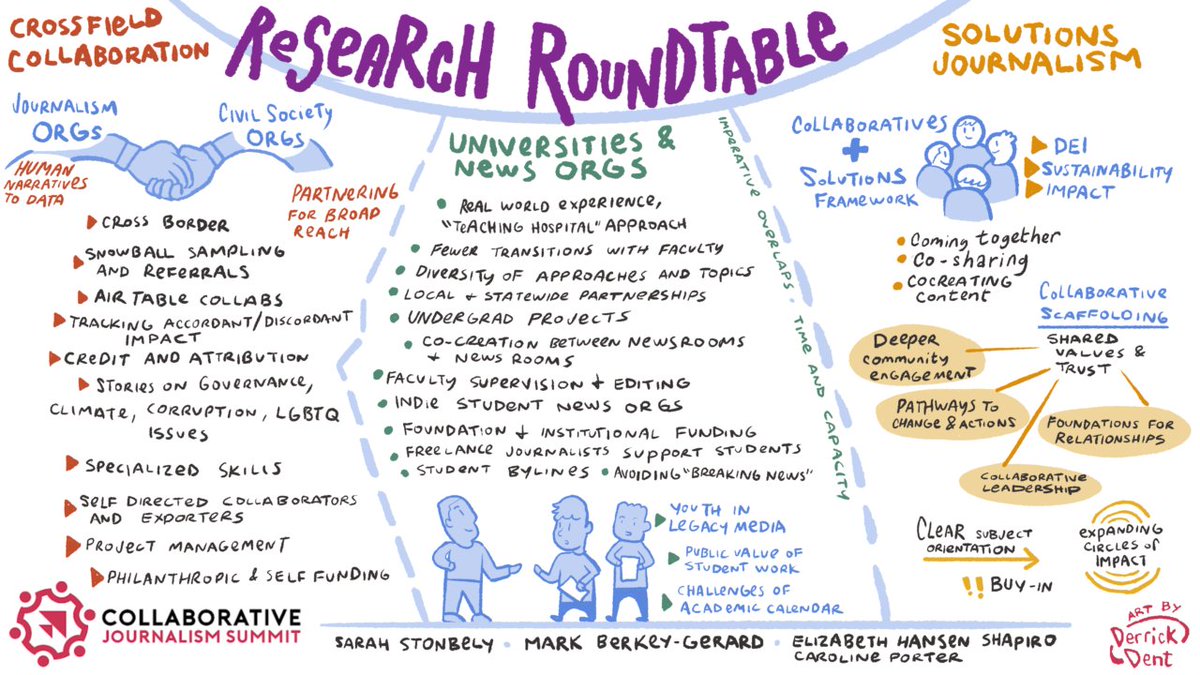 RESEARCH ROUNDTABLE
CROSSFIELD
COLLABORATION
JOURNALISM
ORGS
CIVIL SOCIETY
ORGS
HUMAN
NARRATIVES
TO DATA
PARTNERING
FOR BROAD
REACH
CROSS BORDER
SNOWBALL SAMPLING
AND REFERRALS
AIR TABLE COLLABS
TRACKING ACCORDANT/DISCORDANT
IMPACT
CREDIT AND ATTRIBUTION
STORIES ON GOVERNANCE,
CLIMATE, CORRUPTION, LGBTQ
ISSUES
SPECIALIZED SKILLS
SELF DIRECTED COLLABORATORS
AND EXPORTERS
PROJECT MANAGEMENT
PHILANTHROPIC & SELF FUNDING
UNIVERSITIES &
NEWS ORGS
REAL WORLD EXPERIENCE,
"TEACHING HOSPITAL" APPROACH
FEWER TRANSITIONS WITH FACULTY
DIVERSITY OF APPROACHES AND TOPICS
LOCAL + STATEWIDE PARTNERSHIPS
UNDERGRAD PROJECTS
CO-CREATION BETWEEN NEWSROOMS
+ NEWS ROOMS
FACULTY SUPERVISION + EDITING
INDIE STUDENT NEWS ORGS
FOUNDATION + INSTITUTIONAL FUNDING
FREELANCE JOURNALISTS SUPPORT STUDENTS
STUDENT BYLINES • AVOIDING "BREAKING NEWS"
YOUTH IN
LEGACY MEDIA
PUBLIC VALUE OF
STUDENT WORK
CHALLENGES OF
ACADEMIC CALENDAR
IMPERATIVE OVERLAPS · TIME AND CAPACITY
SOLUTIONS
JOURNALISM
COLLABORATIVES
+
SOLUTIONS
FRAMEWORK
DEI
SUSTAINABILITY
IMPACT
Coming together
Co-sharing
COCREATING
Content
COLLABORATIVE
SCAFFOLDING
SHARED
VALUES &
TRUST
DEEPER
COMMUNITY
ENGAGEMENT
PATHWAYS TO
CHANGE & ACTIONS
FOUNDATIONS FOR
RELATIONSHIPS
COLLABORATIVE
LEADERSHIP
CLEAR SUBJECT
ORIENTATION
!! BUY-IN
EXPANDING
CIRCLES OF
IMPACT
COLLABORATIVE
JOURNALISM SUMMIT
SARAH STONBELY · MARK BERKEY-GERARD · ELIZABETH HANSEN SHAPIRO
CAROLINE PORTER
ART BY
Derrick
Dent